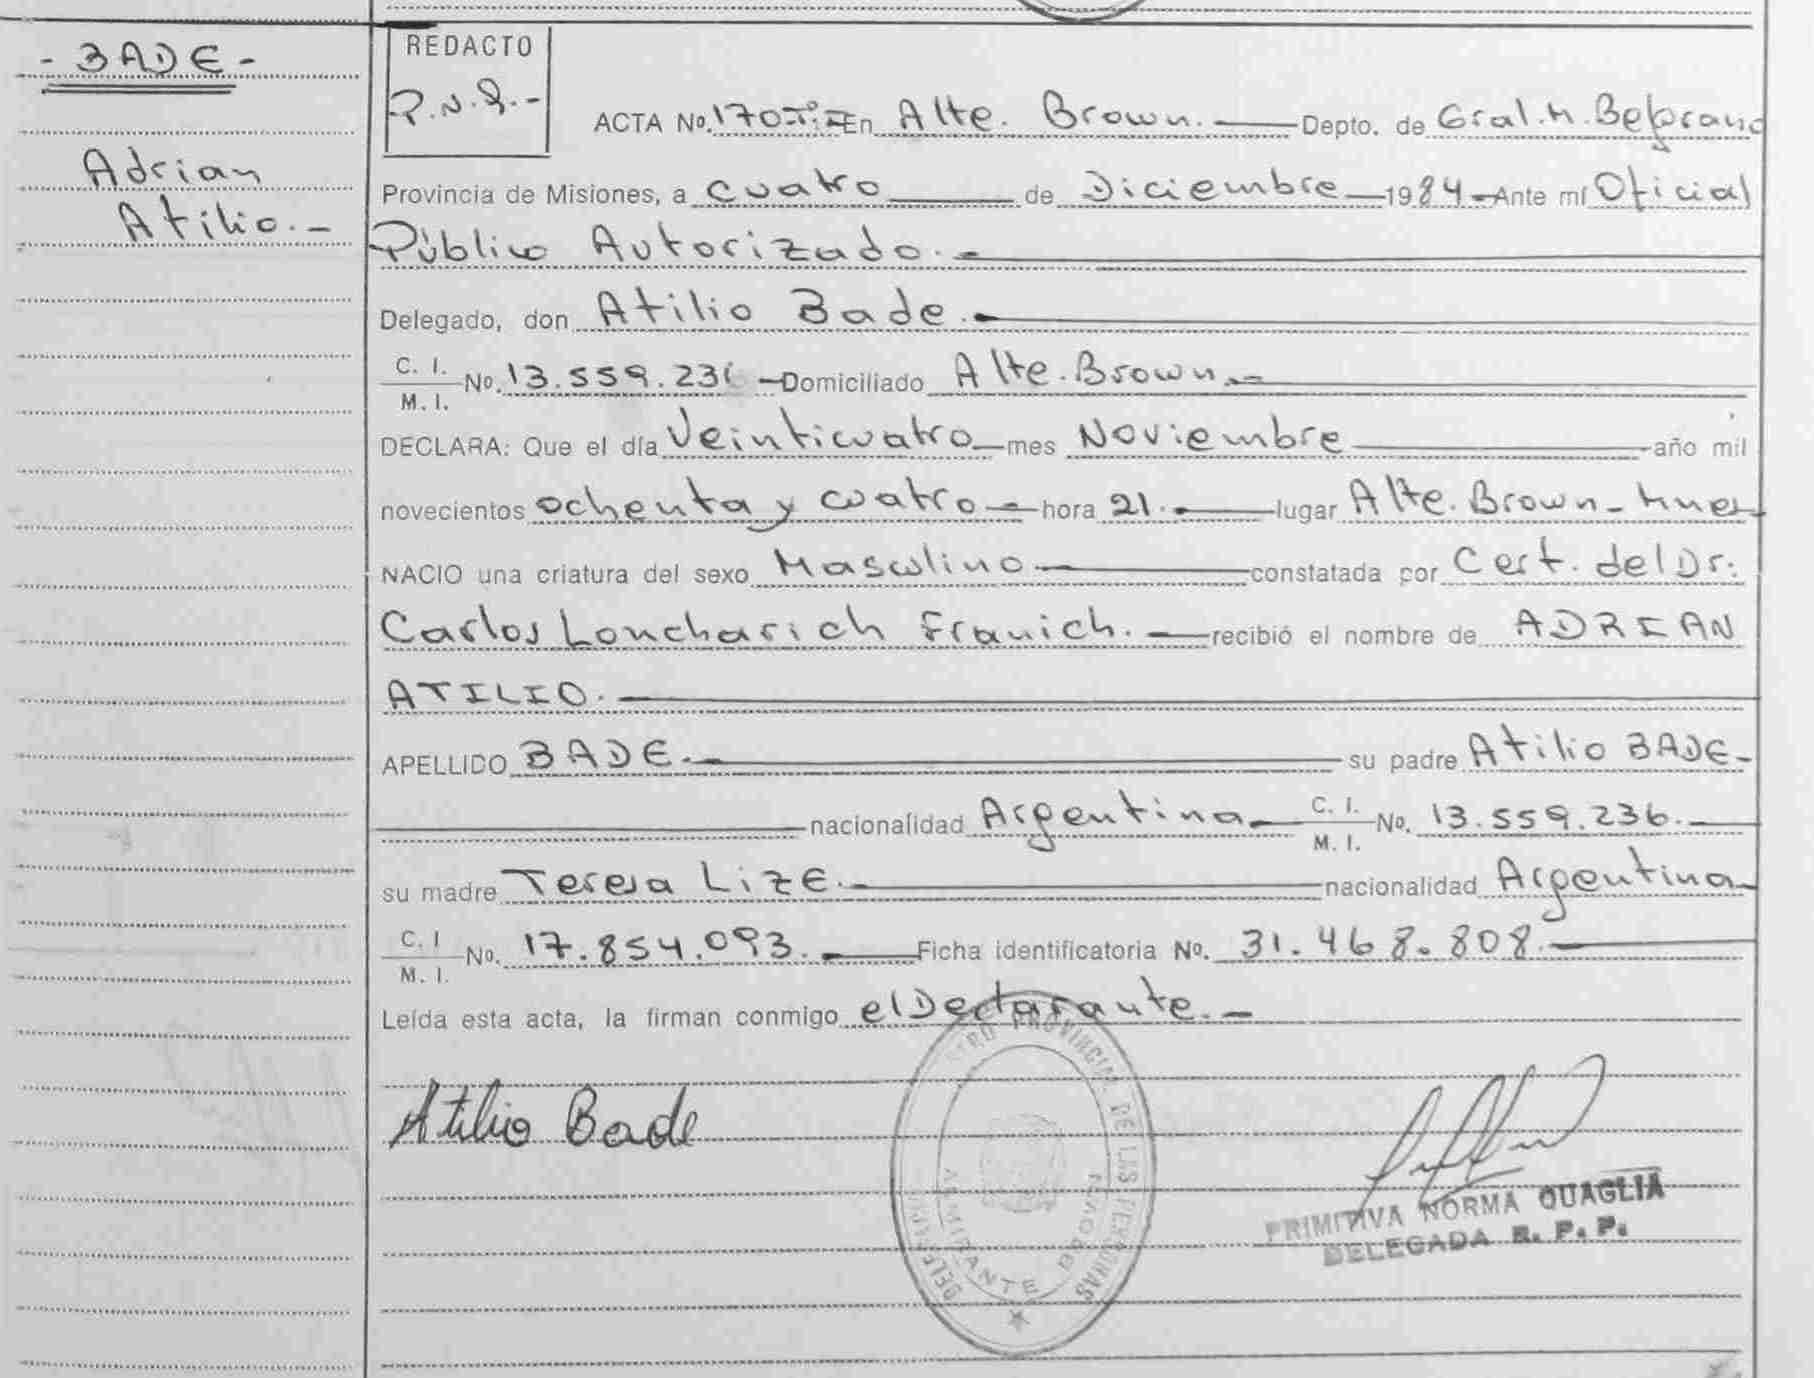 - BADE -
Adrian
Atilio. -
REDACTO
P.N.Q. -
ACTA No. 170 En Alte. Brown. Depto. de Gral. M. Belgrano
Provincia de Misiones, a cuatro de Diciembre 1984 - Ante mí Oficial
Público Autorizado. -
Delegado, don Atilio Bade. -
C. I.
M. I. No. 13.559.236 - Domiciliado Alte. Brown. -
DECLARA: Que el día Veinticuatro mes Noviembre año mil
novecientos ochenta y cuatro - hora 21. lugar Alte. Brown - Mnes
NACIO una criatura del sexo Masculino constatada por Cert. del Dr:
Carlos Loncharich Franich. - recibió el nombre de ADRIAN
ATILIO.
APELLIDO BADE. su padre Atilio BADE -
nacionalidad Argentina C. I.
M. I. No. 13.559.236. -
su madre Teresa LizE. nacionalidad Argentina
C. I
M. I. No. 17.854.093. Ficha identificatoria No. 31.468.808.
Leída esta acta, la firman conmigo el Declarante. -
Atilio Bade
PROVINCIAL DE LAS PERSONAS
ALMIRANTE BROWN
PRIMITIVA NORMA QUAGLIA
DELEGADA R. P. P.